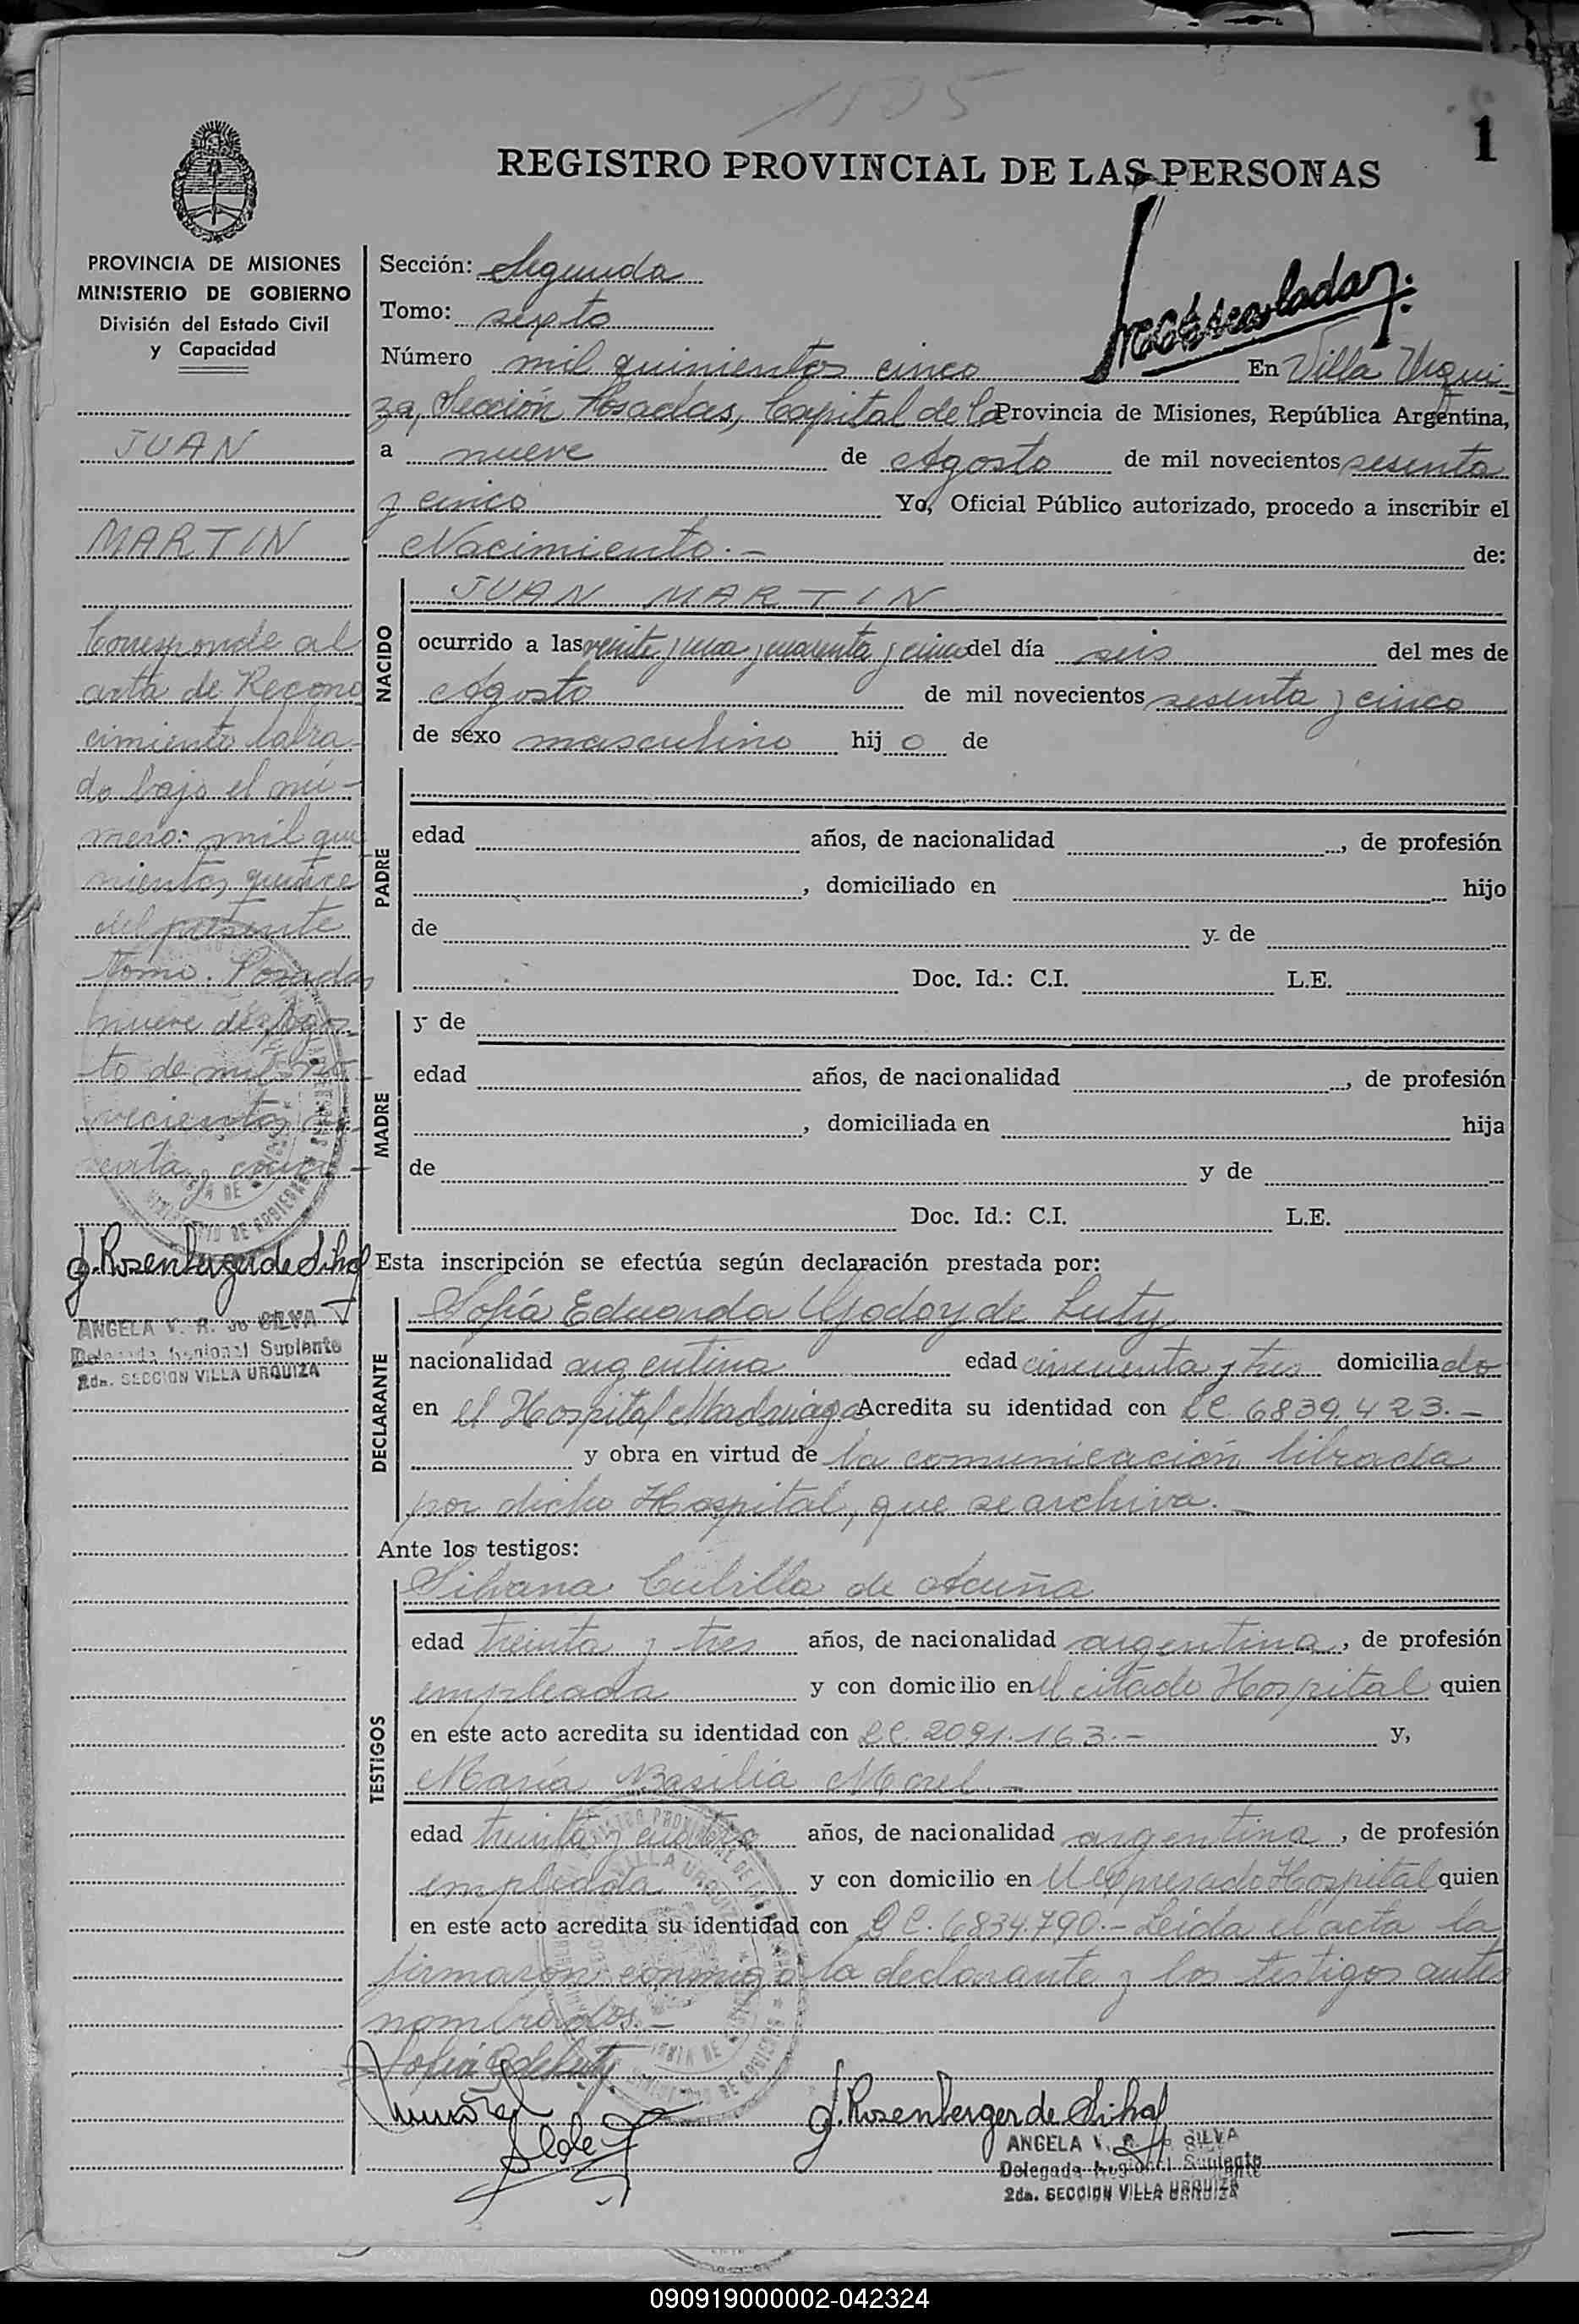 1505
1
REGISTRO PROVINCIAL DE LAS PERSONAS
PROVINCIA DE MISIONES
MINISTERIO DE GOBIERNO
División del Estado Civil
y Capacidad
JUAN
MARTIN
Corresponde al
acta de Recono
cimiento labra-
do bajo el nú-
mero: mil qui
nientos quince
del presente
tomo. Posadas
nueve de Agos-
to de mil no-
vecientos se-
senta y cinco-
J. Rosenberger de Silva
ANGELA V. R. de SILVA
Delegada Regional Suplente
2da. SECCION VILLA URQUIZA
Sección: Segunda
Tomo: sexto
Número mil quinientos cinco En Villa Urqui-
za, Sección Posadas, Capital de la Provincia de Misiones, República Argentina,
a nueve de Agosto de mil novecientos sesenta
y cinco Yo, Oficial Público autorizado, procedo a inscribir el
Nacimiento.- de:
NACIDO
JUAN MARTIN
ocurrido a las veinte y una y cuarenta y cinco del día seis del mes de
Agosto de mil novecientos sesenta y cinco
de sexo masculino hijo de
PADRE
edad años, de nacionalidad , de profesión
, domiciliado en hijo
de y de
Doc. Id.: C.I. L.E.
MADRE
y de
edad años, de nacionalidad , de profesión
, domiciliada en hija
de y de
Doc. Id.: C.I. L.E.
Esta inscripción se efectúa según declaración prestada por:
DECLARANTE
Sofía Eduarda Godoy de Luty
nacionalidad argentina edad cincuenta y tres domiciliado
en el Hospital Madariaga Acredita su identidad con LC. 6839.423.-
y obra en virtud de la comunicación librada
por dicho Hospital, que se archiva.-
Ante los testigos:
TESTIGOS
Silvana Cubilla de Acuña
edad treinta y tres años, de nacionalidad argentina, de profesión
empleada y con domicilio en el citado Hospital quien
en este acto acredita su identidad con LC. 2091.163.- y,
María Basilia Morel.-
edad treinta y cuatro años, de nacionalidad argentina, de profesión
empleada y con domicilio en el expresado Hospital quien
en este acto acredita su identidad con LC. 6834.790.- Leida el acta la
firmaron conmigo la declarante y los testigos ante
nombrados.-
Sofia G de Luty
J. Rosenberger de Silva
ANGELA V. R. de SILVA
Delegada Regional Suplente
2da. SECCION VILLA URQUIZA
090919000002-042324